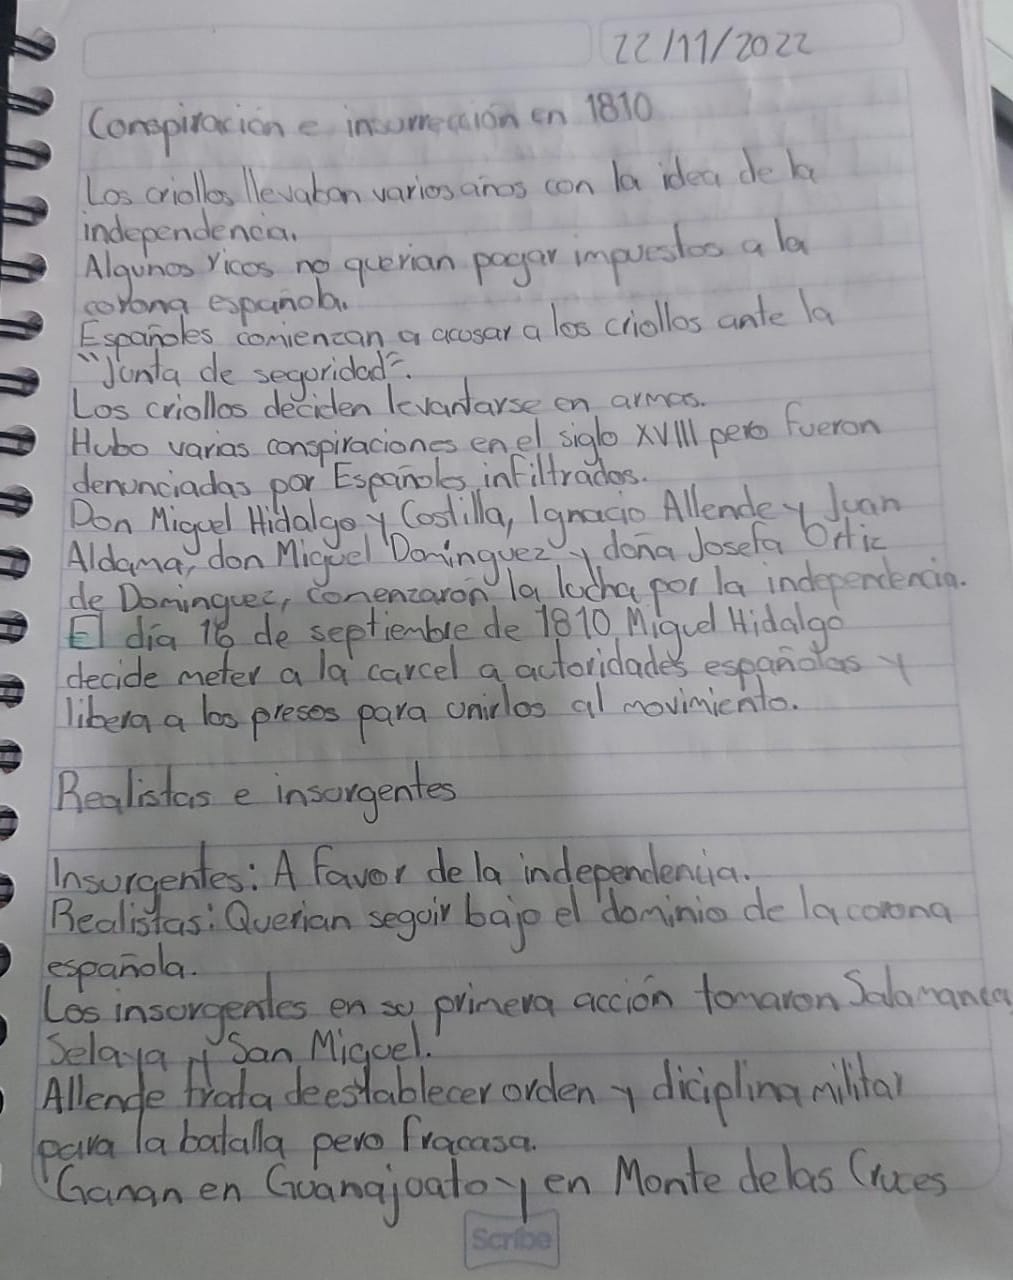 22/11/2022
Conspiración e insurrección en 1810
Los criollos llevaban varios años con la idea de la
independencia.
Algunos ricos no querian pagar impuestos a la
corona española.
Españoles comienzan a acosar a los criollos ante la
"Junta de seguridad".
Los criollos deciden levantarse en armas.
Hubo varias conspiraciones en el siglo XVIII pero fueron
denunciadas por Españoles infiltrados.
Don Miguel Hidalgo y Costilla, Ignacio Allende y Juan
Aldama, don Miguel Dominguez y doña Josefa Ortiz
de Dominguez, comenzarón la lucha por la independencia.
El día 16 de septiembre de 1810 Miguel Hidalgo
decide meter a la carcel a autoridades españolas y
libera a los presos para unirlos al movimiento.
Realistas e insurgentes
Insurgentes: A favor de la independencia.
Realistas: Querian seguir bajo el dominio de la corona
española.
Los insurgentes en su primera acción tomaron Salamanca
Selaya y San Miguel.
Allende trata de establecer orden y diciplina militar
para la batalla pero fracasa.
Ganan en Guanajuato y en Monte de las Cruces
Scribe